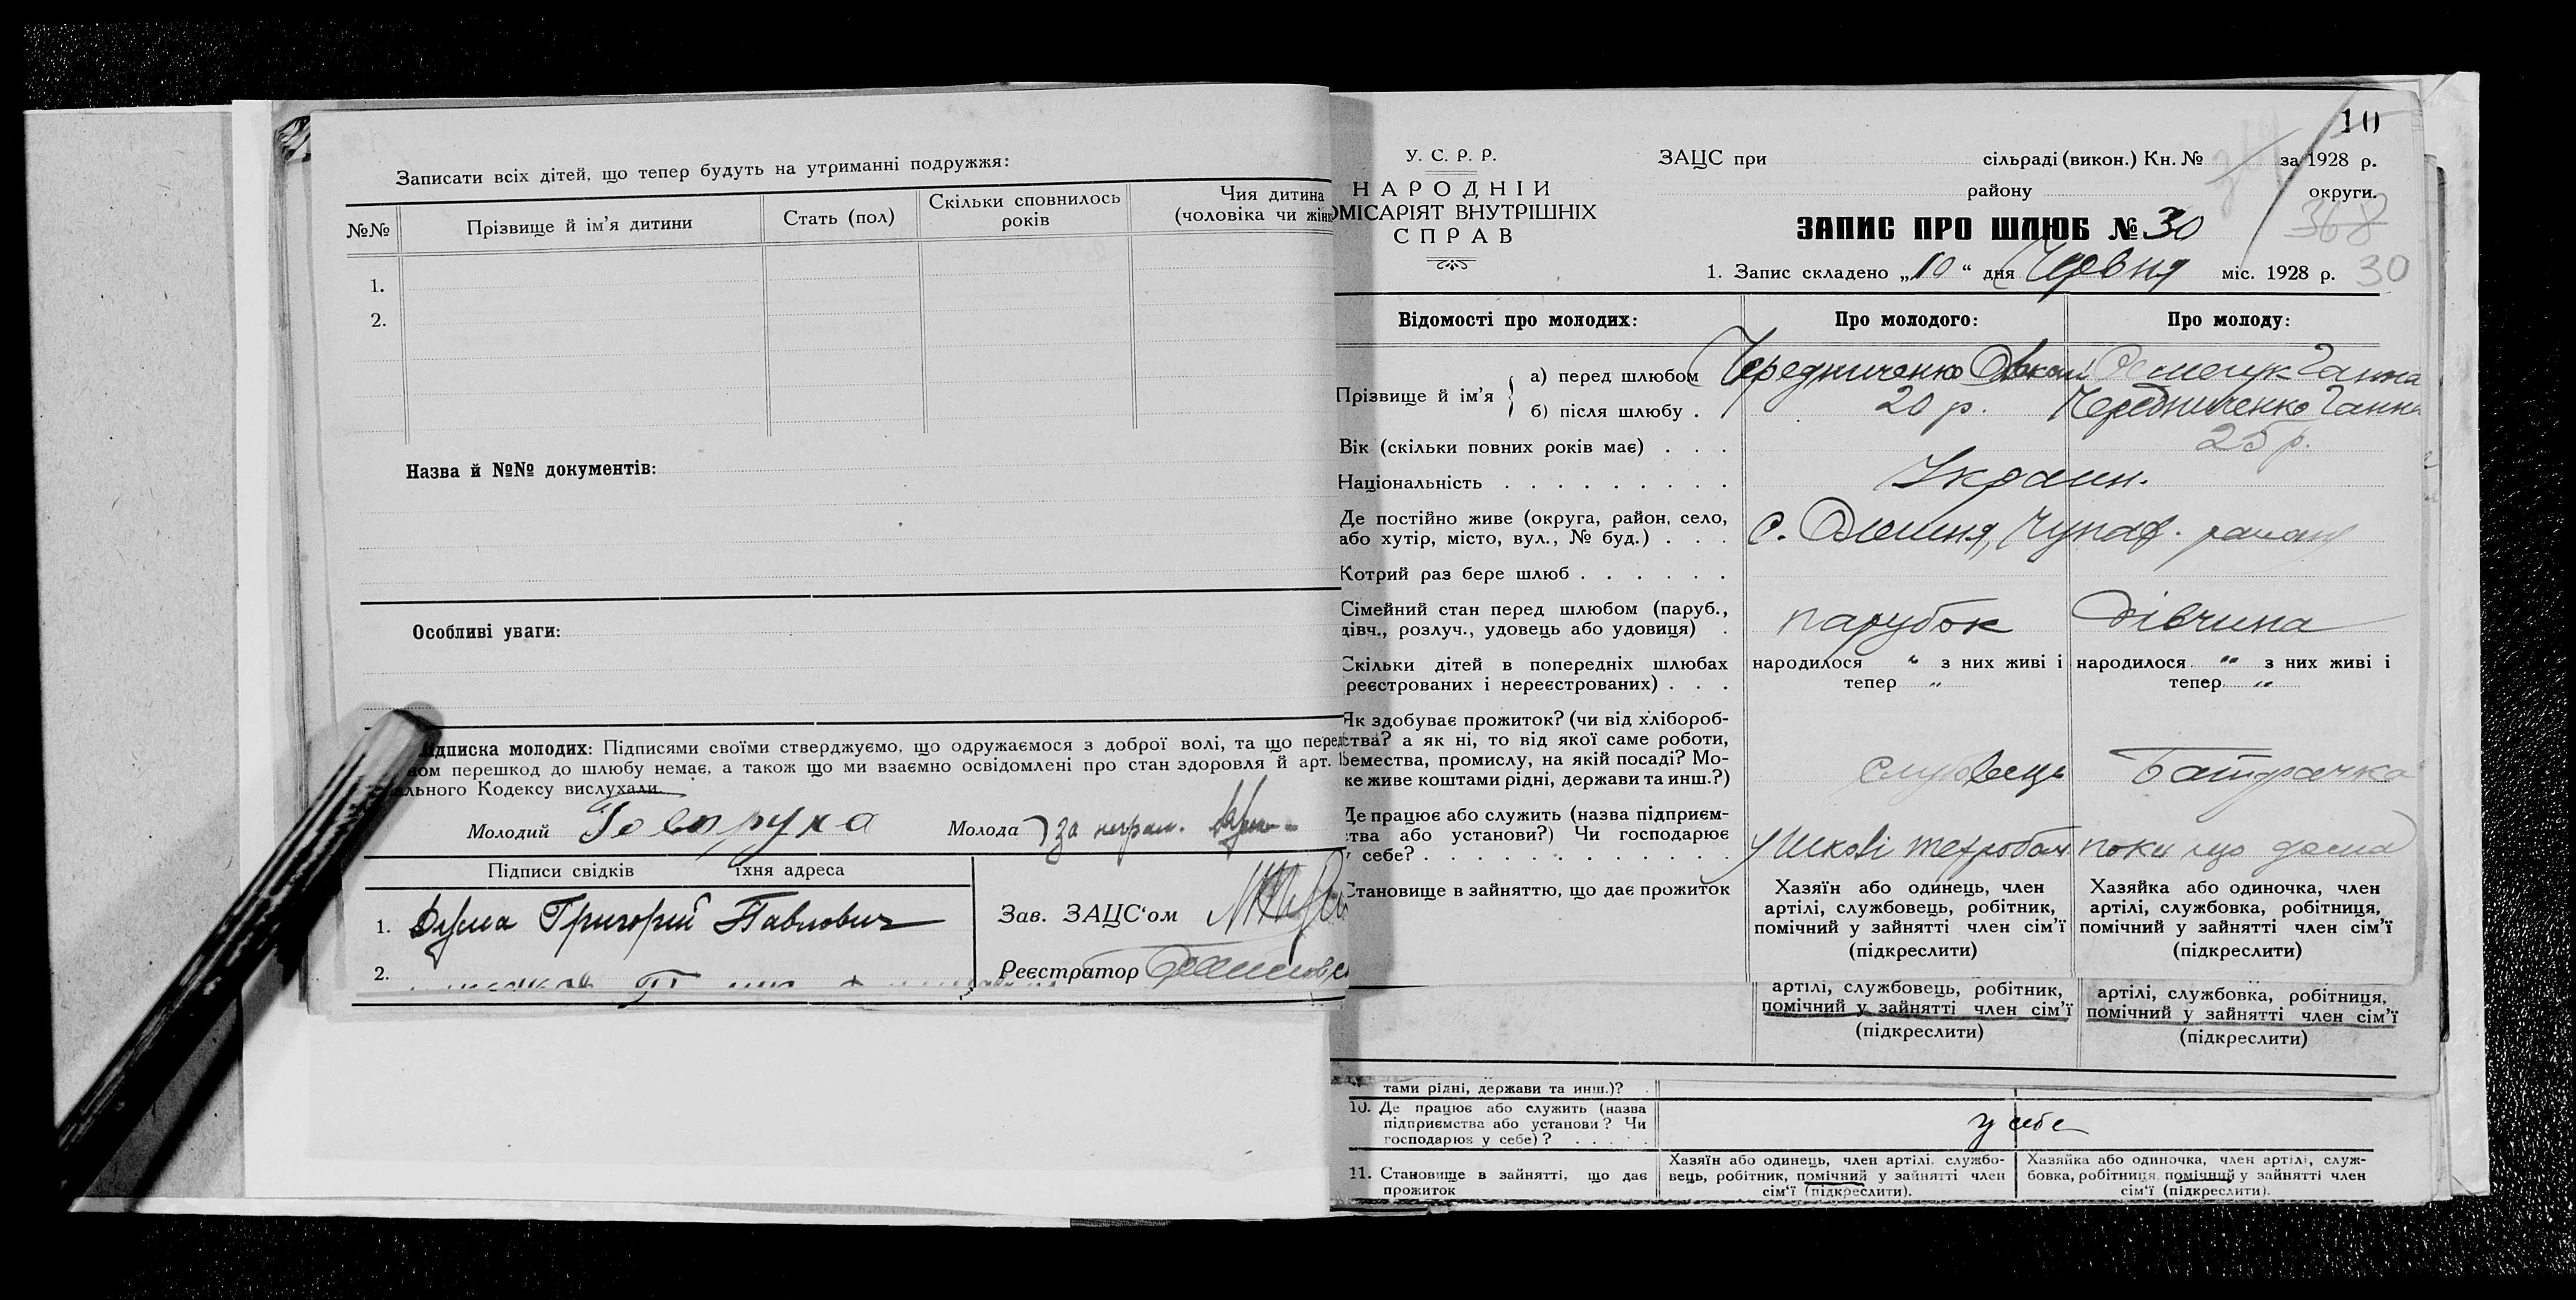 Записати всіх дітей, що тепер будуть на утриманні подружжя:
№№ Прізвище й ім'я дитини Стать (пол) Скільки сповнилось років Чия дитина (чоловіка чи жінк
1.
2.
Назва й №№ документів:
Особливі уваги:
ідписка молодих: Підписями своїми стверджуємо, що одружаємося з доброї волі, та що перед
ном перешкод до шлюбу немає, а також що ми взаємно освідомлені про стан здоровля й арт. 1
ального Кодексу вислухали
Молодий Молода за неграм.
Підписи свідків їхня адреса
1. Дума Григорій Павлович
2.
Зав. ЗАЦС'ом
Реєстратор
10
У. С. Р. Р.
НАРОДНІЙ
ОМІСАРІЯТ ВНУТРІШНІХ
СПРАВ
ЗАЦС при сільраді (викон.) Кн. № за 1928 р.
району округи.
368
ЗАПИС ПРО ШЛЮБ № 30
1. Запис складено „10“ дня Червня міс. 1928 р. 30
Відомості про молодих: Про молодого: Про молоду:
Прізвище й ім'я
а) перед шлюбом Чередниченко Ганна
б) після шлюбу . Чередниченко Ганна
Вік (скільки повних років має) . . . 20 р. 25 р.
Національність . . . . . . . . . Украин.
Де постійно живе (округа, район, село,
або хутір, місто, вул., № буд.) . . . с. района
Котрий раз бере шлюб . . . . . .
Сімейний стан перед шлюбом (паруб.,
дівч., розлуч., удовець або удовиця) . парубок дівчина
Скільки дітей в попередніх шлюбах
реєстрованих і нереєстрованих) . . .
народилося „ з них живі і
тепер „
народилося „ з них живі і
тепер „
Як здобуває прожиток? (чи від хлібороб-
ства? а як ні, то від якої саме роботи,
ремества, промислу, на якій посаді? Мо-
же живе коштами рідні, держави та инш.?) Батрачка
Де працює або служить (назва підприєм-
ства або установи?) Чи господарює
у себе? . . . . . . . . . . . . поки що дома
Становище в зайняттю, що дає прожиток
Хазяїн або одинець, член
артілі, службовець, робітник,
помічний у зайнятті член сім'ї
(підкреслити)
Хазяйка або одиночка, член
артілі, службовка, робітниця,
помічний у зайнятті член сім'ї
(підкреслити)
артілі, службовець, робітник,
помічний у зайнятті член сім'ї
(підкреслити)
артілі, службовка, робітниця,
помічний у зайнятті член сім'ї
(підкреслити)
тами рідні, держави та инш.)? .
10. Де працює або служить (назва
підприємства або установи? Чи
господарює у себе)? . . . . . у себе
11. Становище в зайнятті, що дає
прожиток
Хазяїн або одинець, член артілі, службо-
вець, робітник, помічний у зайнятті член
сім'ї (підкреслити).
Хазяйка або одиночка, член артілі, служ-
бовка, робітниця, помічний у зайнятті член
сім'ї (підкреслити).